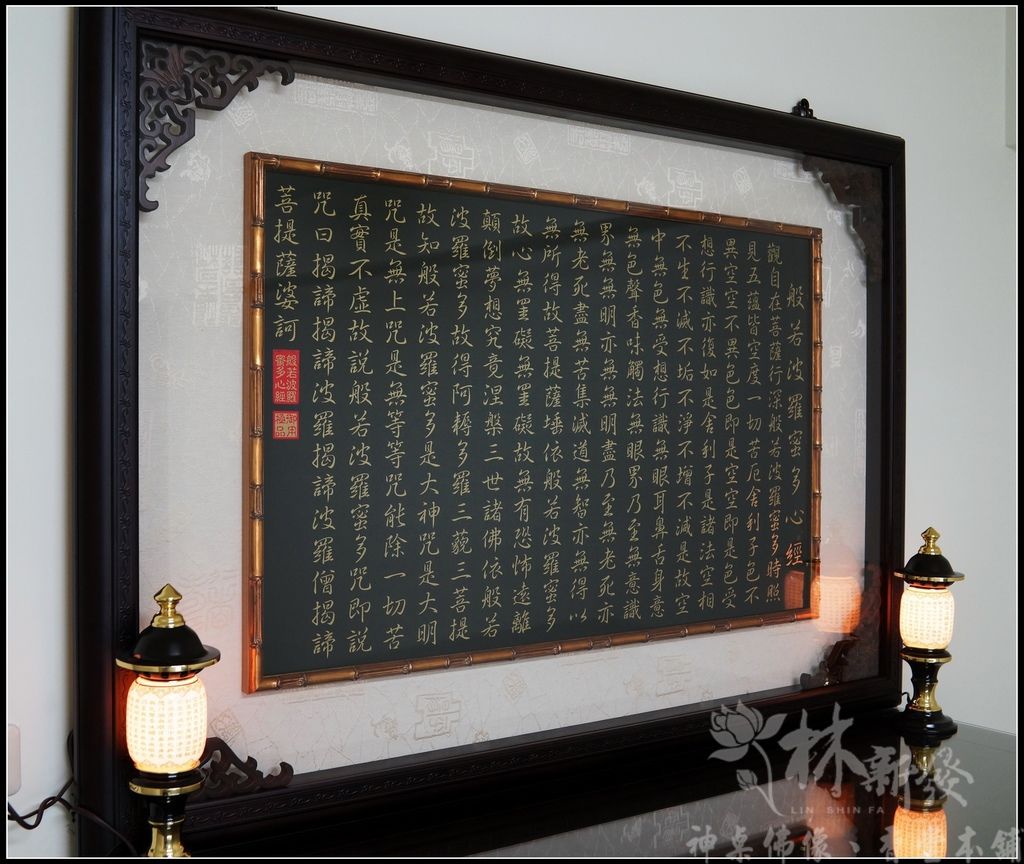 般若波羅蜜多心經
觀自在菩薩行深般若波羅蜜多時照
見五蘊皆空度一切苦厄舍利子色不
異空空不異色色即是空空即是色受
想行識亦復如是舍利子是諸法空相
不生不滅不垢不淨不增不減是故空
中無色無受想行識無眼耳鼻舌身意
無色聲香味觸法無眼界乃至無意識
界無無明亦無無明盡乃至無老死亦
無老死盡無苦集滅道無智亦無得以
無所得故菩提薩埵依般若波羅蜜多
故心無罣礙無罣礙故無有恐怖遠離
顛倒夢想究竟涅槃三世諸佛依般若
波羅蜜多故得阿耨多羅三藐三菩提
故知般若波羅蜜多是大神咒是大明
咒是無上咒是無等等咒能除一切苦
真實不虛故說般若波羅蜜多咒即說
咒曰揭諦揭諦波羅揭諦波羅僧揭諦
菩提薩婆訶
般若波羅
蜜多心經
林新發
LIN SHIN FA
神桌佛像、本鋪